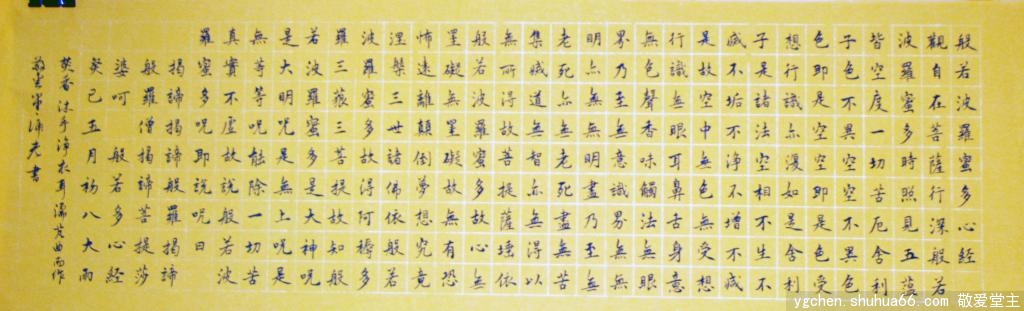 般若波羅蜜多心經
觀自在菩薩行深般若
波羅蜜多時照見五蘊
皆空度一切苦厄舍利
子色不異空空不異色
色即是空空即是色受
想行識亦復如是舍利
子是諸法空相不生不
滅不垢不淨不增不減
是故空中無色無受想
行識無眼耳鼻舌身意
無色聲香味觸法無眼
界乃至無意識界無無
明亦無無明盡乃至無
老死亦無老死盡無苦
集滅道無智亦無得以
無所得故菩提薩埵依
般若波羅蜜多故心無
罣礙無罣礙故無有恐
怖遠離顛倒夢想究竟
涅槃三世諸佛依般若
波羅蜜多故得阿耨多
羅三藐三菩提故知般
若波羅蜜多是大神呪
是大明呪是無上呪是
無等等呪能除一切苦
真實不虛故說般若波
羅蜜多呪即說呪曰
揭諦揭諦般羅揭諦
般羅僧揭諦菩提莎
婆呵 般若多心經
癸巳五月初八大雨
焚香沐手淨耳濡曲而作
老書
ygchen.shuhua66.com 敬爱堂主